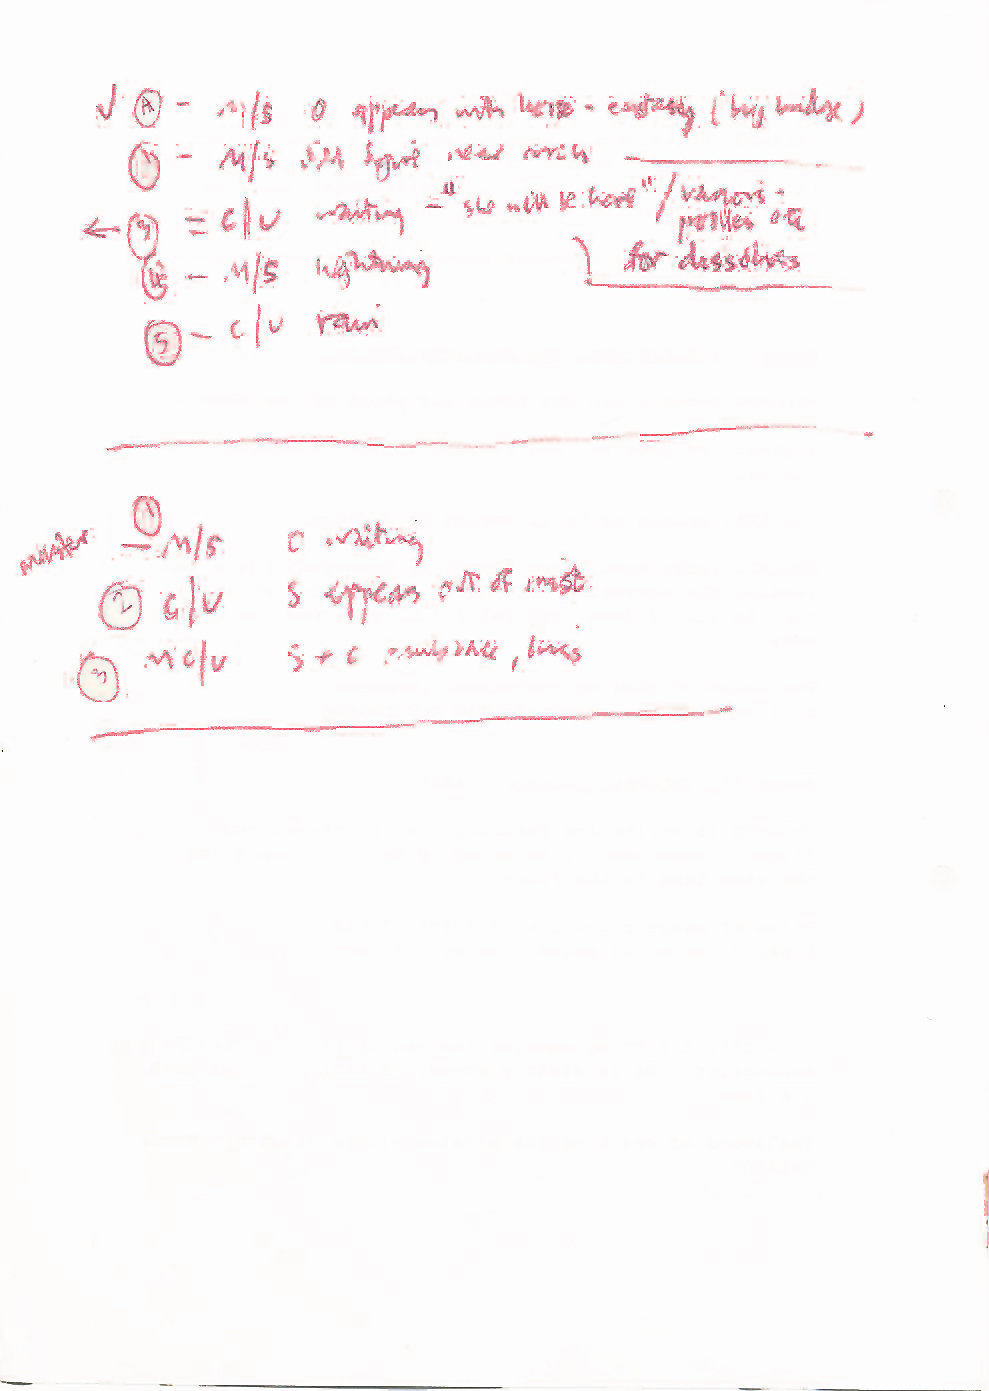 √ Ⓐ - M/S O appears with horse - ecstasy (big bridge)
- M/S SM figure near
← ③ = C/U waiting - "she will be here" / various - profiles etc for dissolves
④ - M/S lightning
⑤ - C/U rain
master ① - M/S C waiting
② C/U S appears out of mist
③ M C/U S + C embrace, kiss